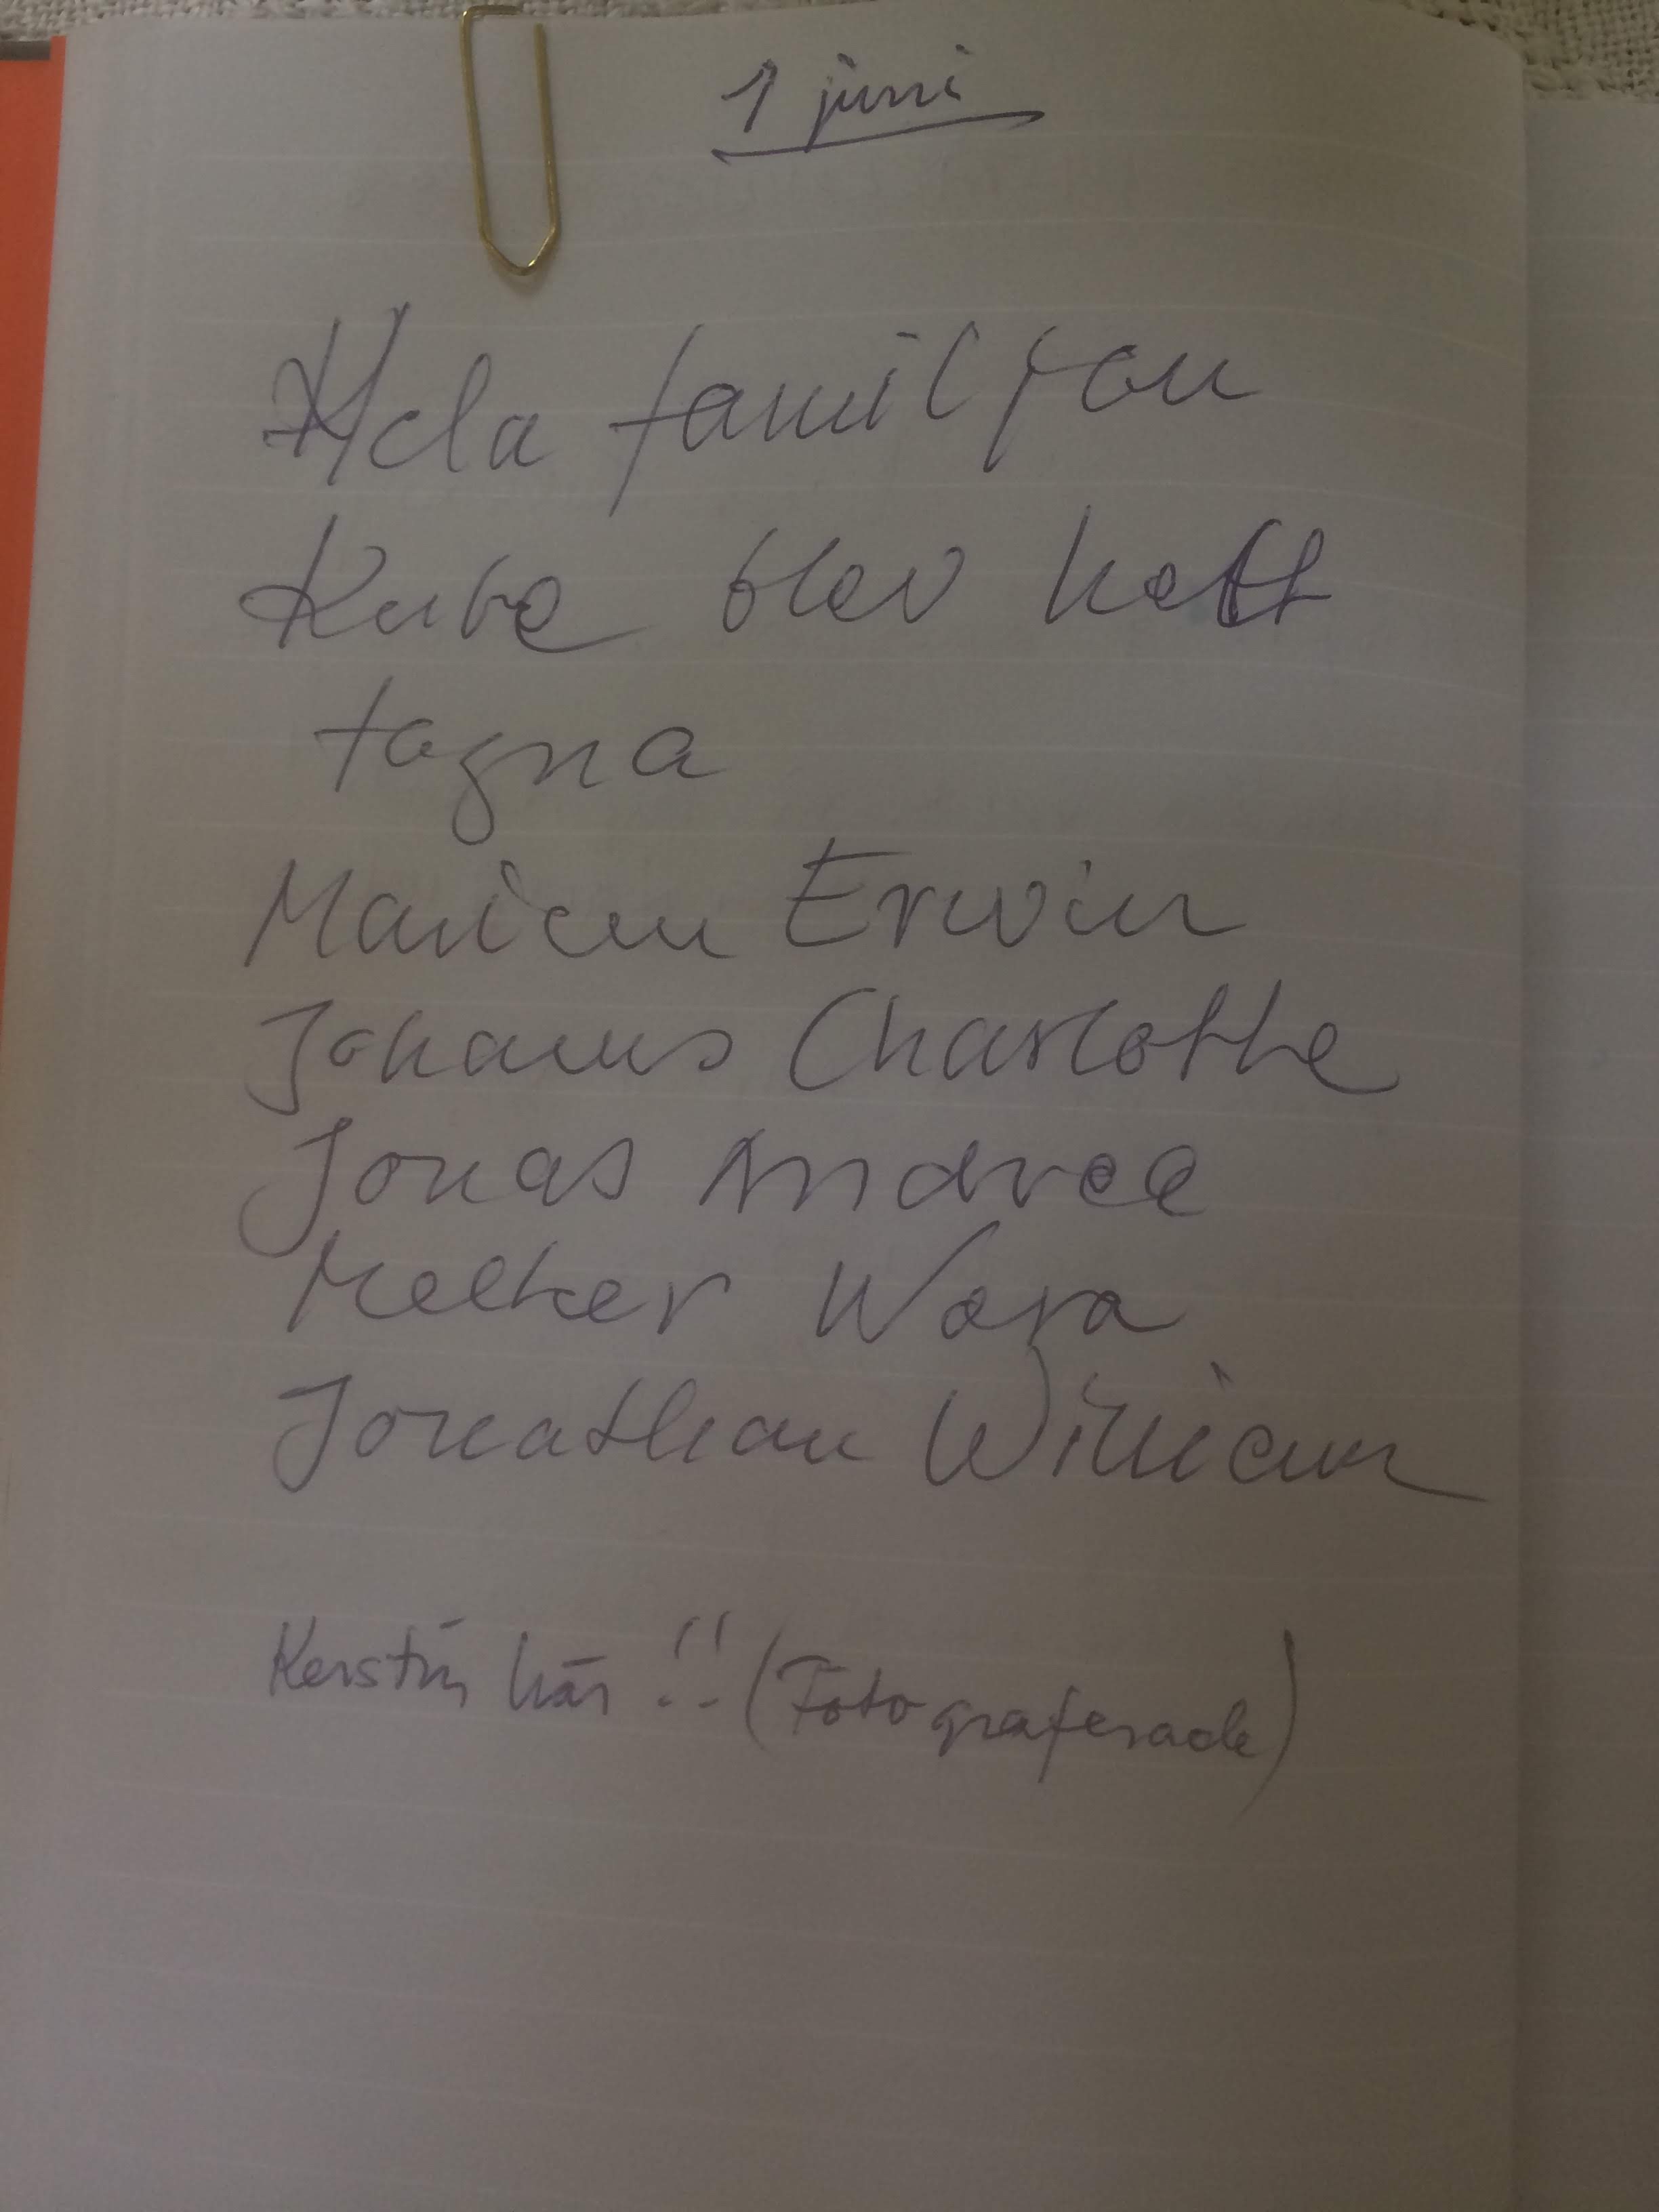 1 juni
Hela familjen
Kube blev helt
tagna
Mariam Erwin
Johannes Charlotte
Jonas Andrea
Melker
Jonathan William
Kerstin här !! (Fotograferade)